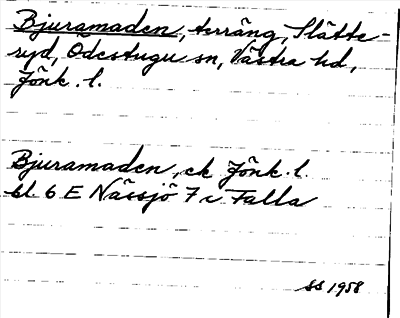 Bjuramaden, terräng, Slätte-
ryd, Ödestugu sn, Västra hd,
Jönk. l.
Bjuramaden, ek Jönk. l.
bl. 6 E Nässjö 7 c Falla
SS 1958